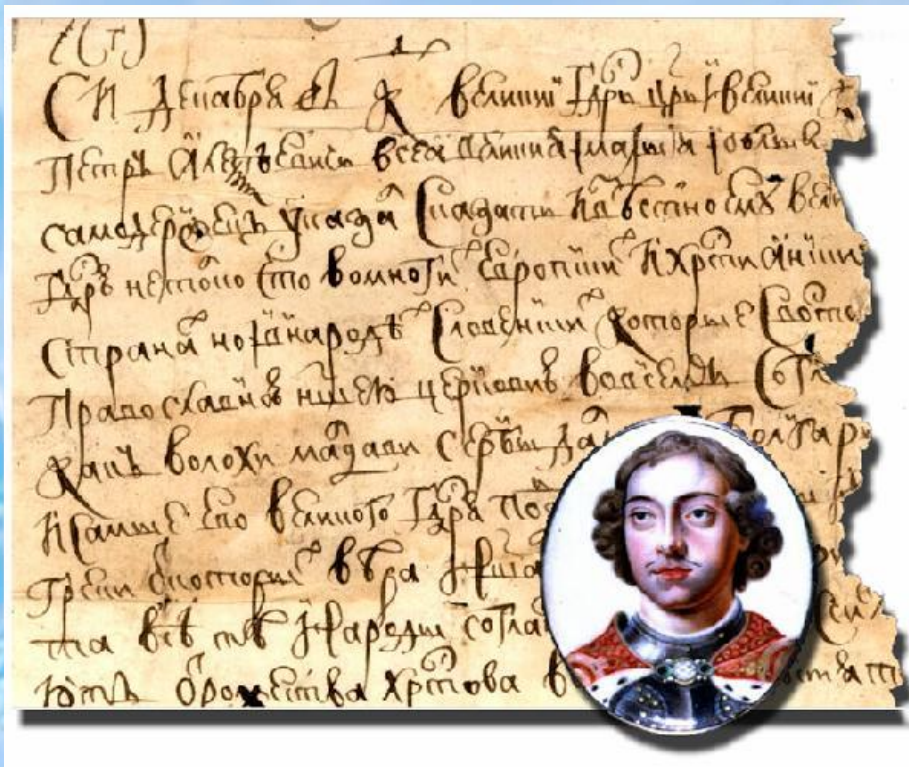 СИ Декабря въ К великиі Гдрь црь і великиі
Петръ Алеѯѣевичь всеа великия і малыя і белыя
самодержецъ указал Сказать Извѣстно ему вели
Гдрю не толко что во многих Европиских и Християнских
Странах но і в народѣх Словенских которые С восто
Православною ншею церковию во всемъ Согл
какъ волохи малдави сербы дал болгары
И самые Его великого Гдря под
Греки от которых вѣра нша
та всѣ тѣ народы согла
ютъ от рожества Христова в